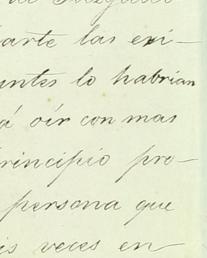 arte las exi-
untes lo habrian
á oir con mas
principio pro-
persona que
is veces en